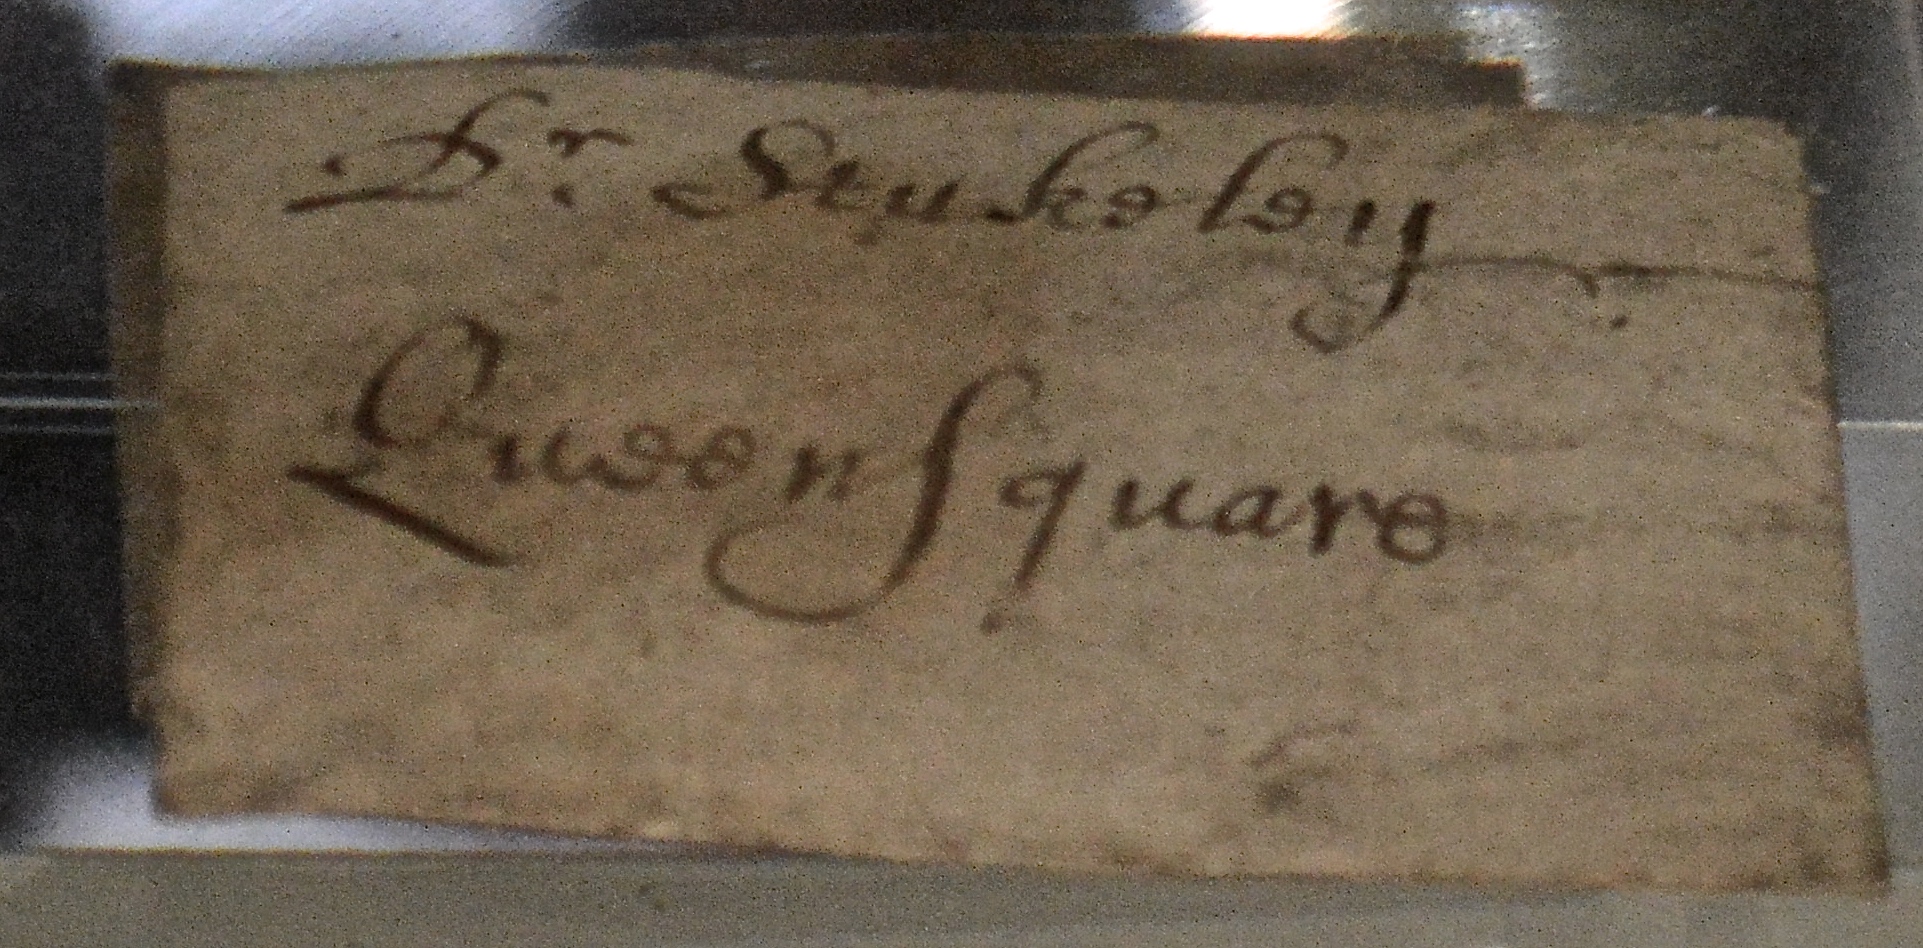 Dr. Stukeley
Queen Square